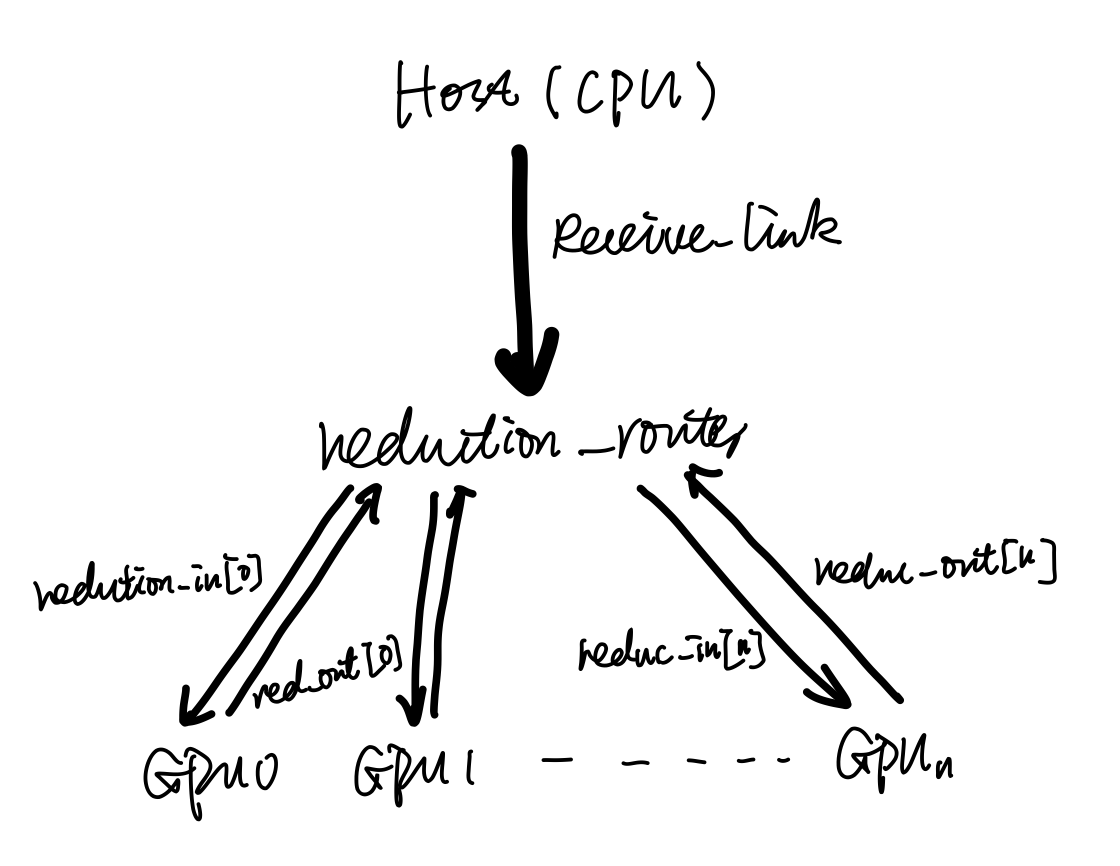 Host (CPU)
Receive_link
reduction_router
redution_in[0]
reduc_out[n]
red_out[0]
reduc_in[n]
GPU0
GPU1
GPUn